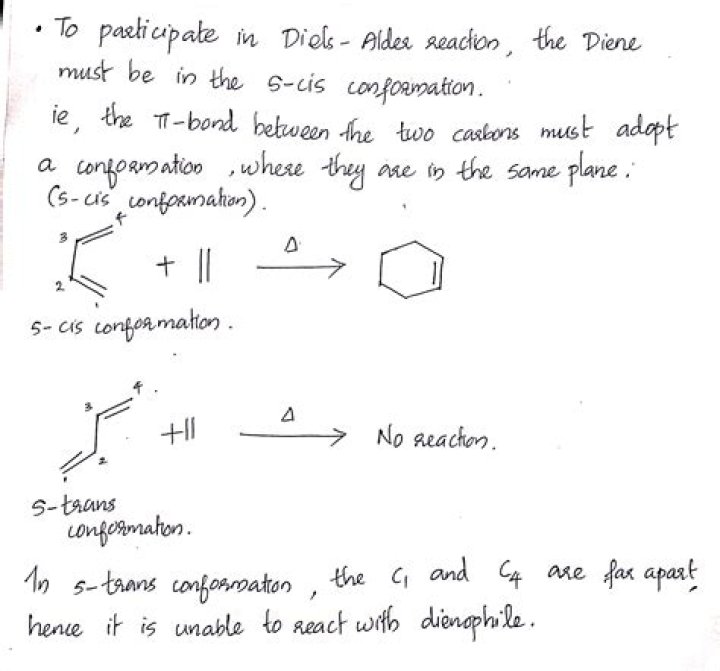 • To participate in Diels - Alder reaction, the Diene
must be in the s-cis conformation.
ie, the π-bond between the two carbons must adopt
a conformation, where they are in the same plane.
(s-cis conformation).
4
3
2
1
+ || Δ
s-cis conformation.
4
3
2
1
+|| Δ No reaction.
s-trans
conformation.
In s-trans conformation, the C1 and C4 are far apart,
hence it is unable to react with dienophile.